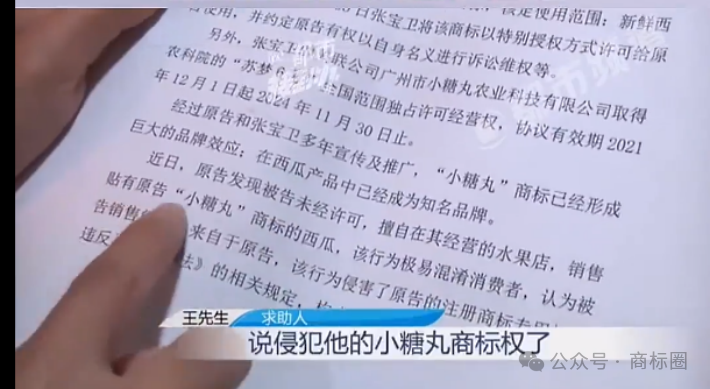 日张宝卫将该商标以特别授权方式许可给原
核定使用范围：新鲜西
告使用，并约定原告有权以自身名义进行诉讼维权等。
另外，张宝卫
联公司广州市小糖丸农业科技有限公司取得
农科院的“苏梦
国范围独占许可经营权，协议有效期 2021
年 12 月 1 日起 2024 年 11 月 30 日止。
经过原告和张宝卫多年宣传及推广，“小糖丸”商标已经形成
巨大的品牌效应；在西瓜产品中已经成为知名品牌。
近日，原告发现被告未经许可，擅自在其经营的水果店，销售
贴有原告“小糖丸”商标的西瓜，该行为极易混淆消费者，认为被
告销售
来自于原告，该行为侵害了原告的注册商标专用
违反
法》的相关规定，
都市频道
王先生
求助人
说侵犯他的小糖丸商标权了
公众号·商标圈